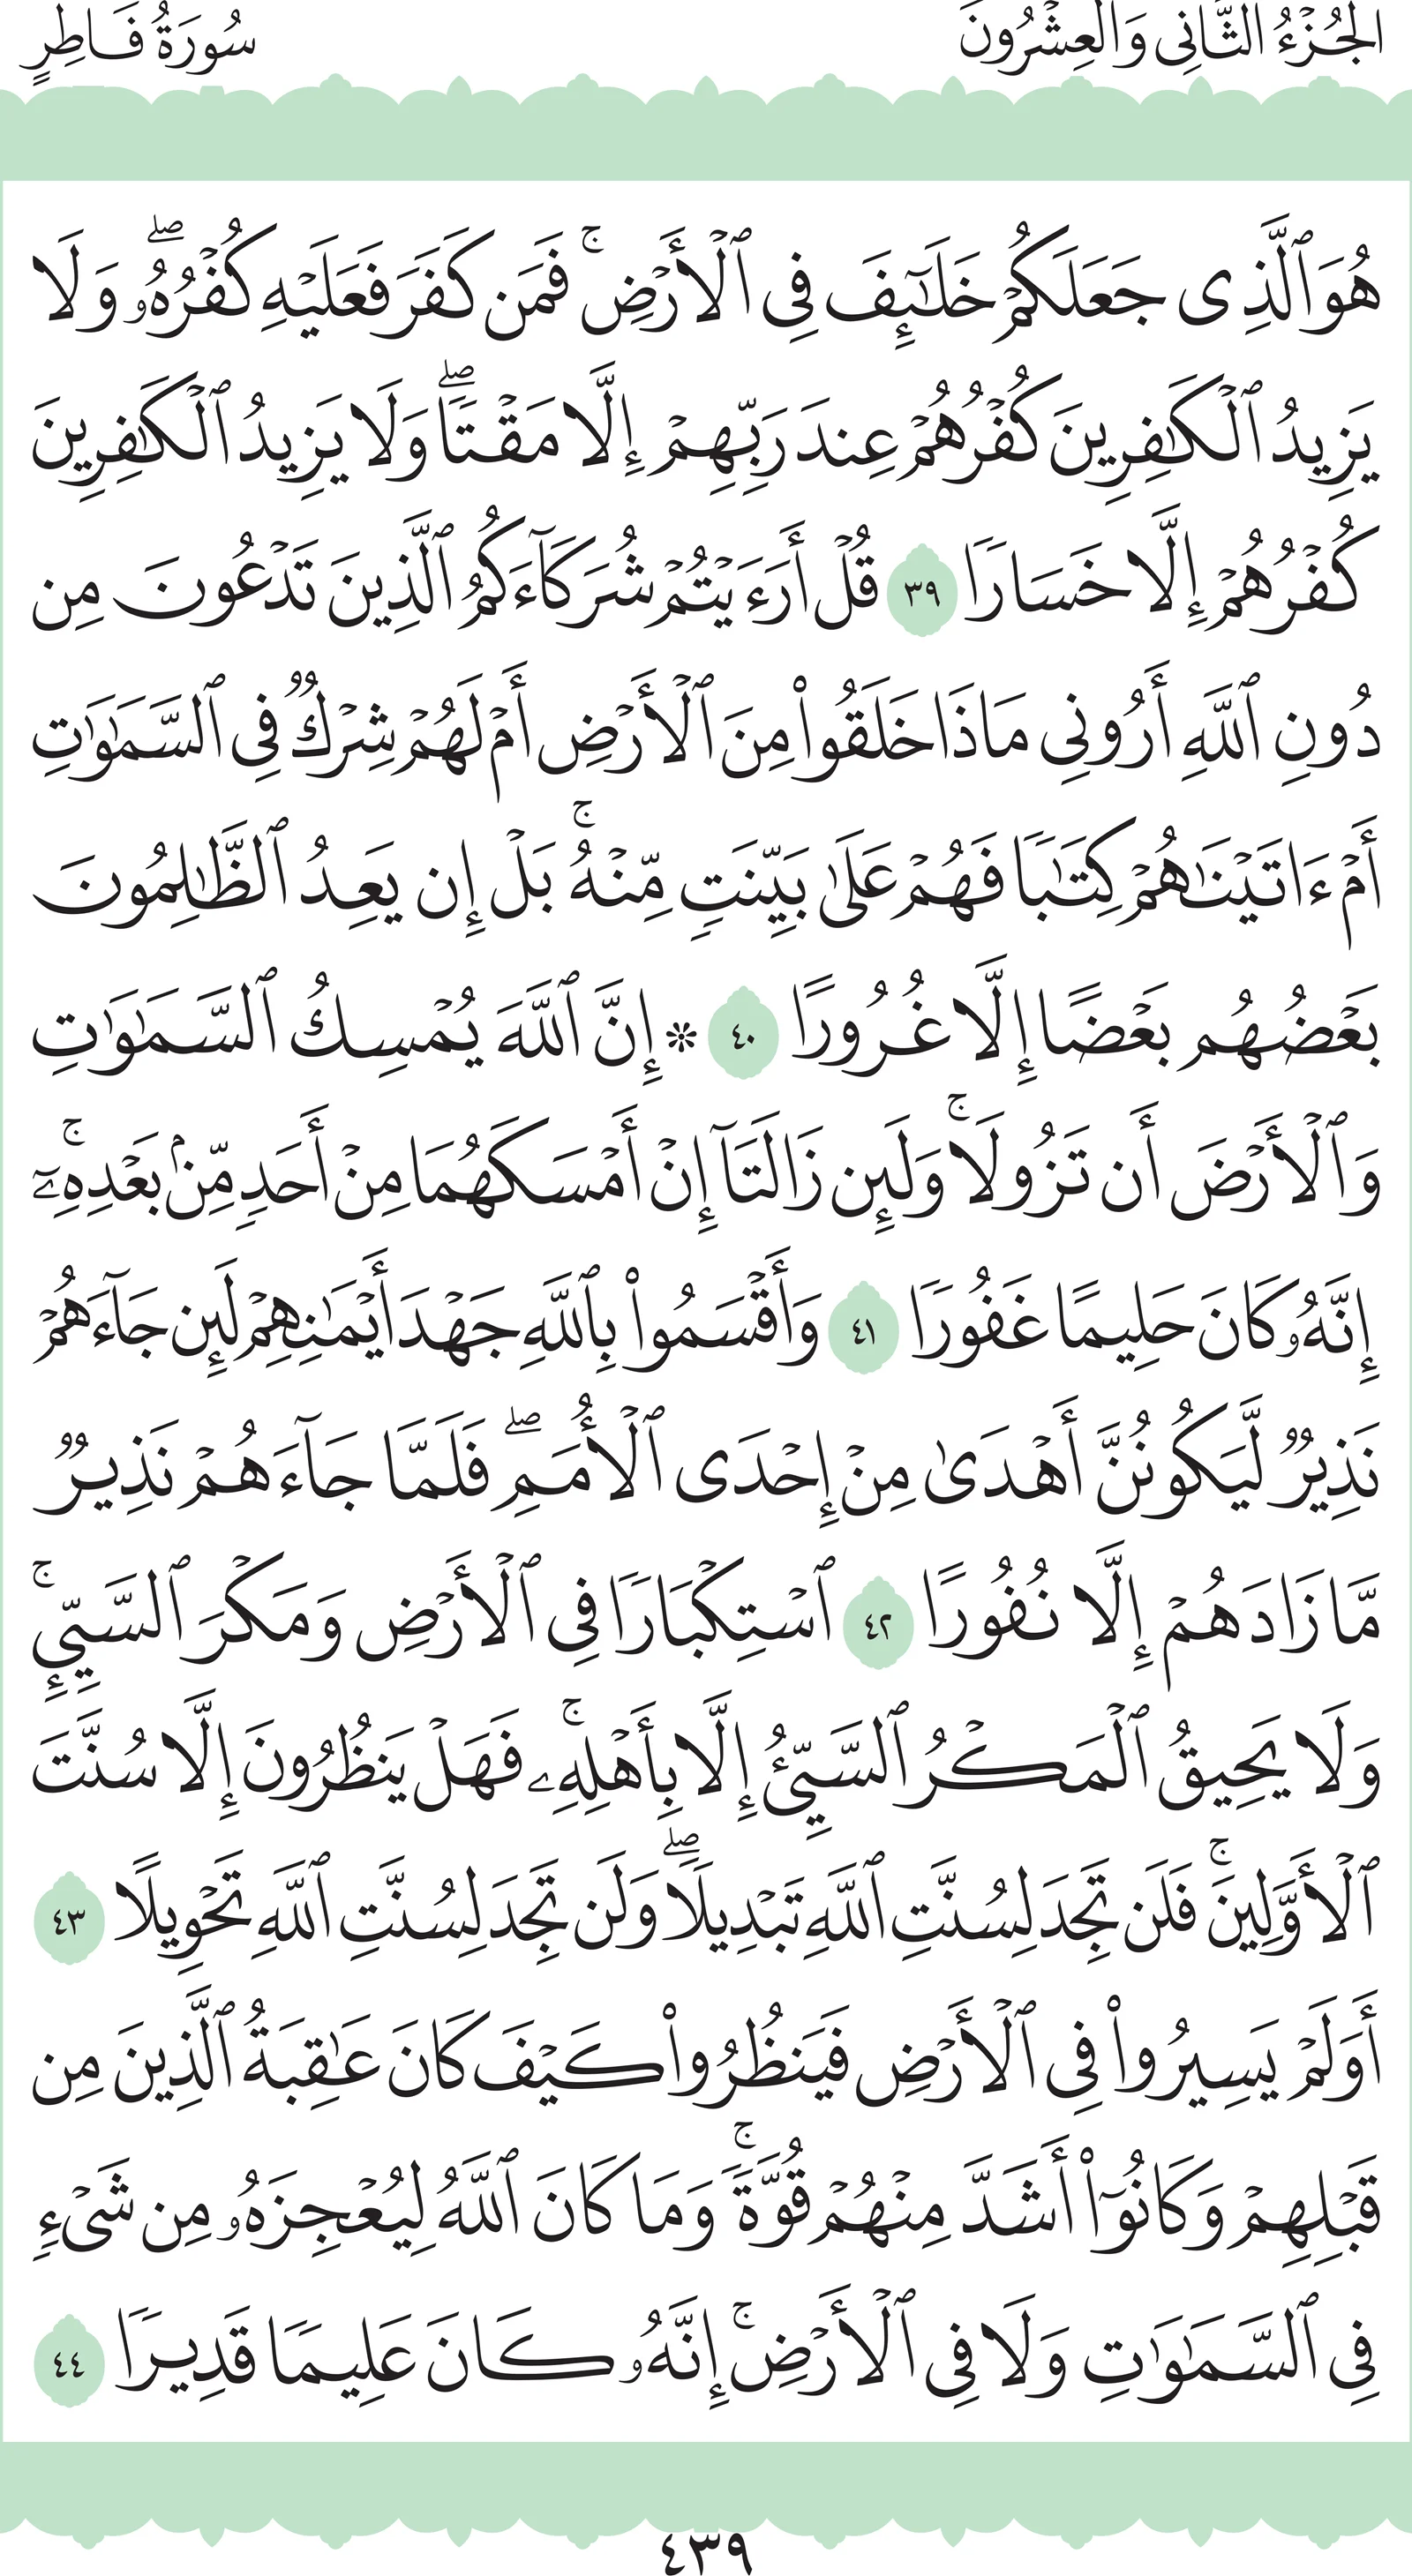 الجُزْءُ الثَّانِي وَالعِشْرُونَ
سُورَةُ فَاطِرٍ
هُوَ ٱلَّذِى جَعَلَكُمۡ خَلَٰٓئِفَ فِى ٱلۡأَرۡضِۚ فَمَن كَفَرَ فَعَلَيۡهِ كُفۡرُهُۥۖ وَلَا
يَزِيدُ ٱلۡكَٰفِرِينَ كُفۡرُهُمۡ عِندَ رَبِّهِمۡ إِلَّا مَقۡتٗاۖ وَلَا يَزِيدُ ٱلۡكَٰفِرِينَ
كُفۡرُهُمۡ إِلَّا خَسَارٗا ٣٩ قُلۡ أَرَءَيۡتُمۡ شُرَكَآءَكُمُ ٱلَّذِينَ تَدۡعُونَ مِن
دُونِ ٱللَّهِ أَرُونِى مَاذَا خَلَقُواْ مِنَ ٱلۡأَرۡضِ أَمۡ لَهُمۡ شِرۡكٞ فِى ٱلسَّمَٰوَٰتِ
أَمۡ ءَاتَيۡنَٰهُمۡ كِتَٰبٗا فَهُمۡ عَلَىٰ بَيِّنَتٖ مِّنۡهُۚ بَلۡ إِن يَعِدُ ٱلظَّٰلِمُونَ
بَعۡضُهُم بَعۡضًا إِلَّا غُرُورًا ٤٠ ۞ إِنَّ ٱللَّهَ يُمۡسِكُ ٱلسَّمَٰوَٰتِ
وَٱلۡأَرۡضَ أَن تَزُولَاۚ وَلَئِن زَالَتَآ إِنۡ أَمۡسَكَهُمَا مِنۡ أَحَدٖ مِّنۢ بَعۡدِهِۦٓۚ
إِنَّهُۥ كَانَ حَلِيمًا غَفُورٗا ٤١ وَأَقۡسَمُواْ بِٱللَّهِ جَهۡدَ أَيۡمَٰنِهِمۡ لَئِن جَآءَهُمۡ
نَذِيرٞ لَّيَكُونُنَّ أَهۡدَىٰ مِنۡ إِحۡدَى ٱلۡأُمَمِۖ فَلَمَّا جَآءَهُمۡ نَذِيرٞ
مَّا زَادَهُمۡ إِلَّا نُفُورًا ٤٢ ٱسۡتِكۡبَارٗا فِى ٱلۡأَرۡضِ وَمَكۡرَ ٱلسَّيِّيِٕۚ
وَلَا يَحِيقُ ٱلۡمَكۡرُ ٱلسَّيِّئُ إِلَّا بِأَهۡلِهِۦۚ فَهَلۡ يَنظُرُونَ إِلَّا سُنَّتَ
ٱلۡأَوَّلِينَۚ فَلَن تَجِدَ لِسُنَّتِ ٱللَّهِ تَبۡدِيلٗاۖ وَلَن تَجِدَ لِسُنَّتِ ٱللَّهِ تَحۡوِيلًا ٤٣
أَوَلَمۡ يَسِيرُواْ فِى ٱلۡأَرۡضِ فَيَنظُرُواْ كَيۡفَ كَانَ عَٰقِبَةُ ٱلَّذِينَ مِن
قَبۡلِهِمۡ وَكَانُوٓاْ أَشَدَّ مِنۡهُمۡ قُوَّةٗۚ وَمَا كَانَ ٱللَّهُ لِيُعۡجِزَهُۥ مِن شَىۡءٖ
فِى ٱلسَّمَٰوَٰتِ وَلَا فِى ٱلۡأَرۡضِۚ إِنَّهُۥ كَانَ عَلِيمٗا قَدِيرٗا ٤٤
٤٣٩